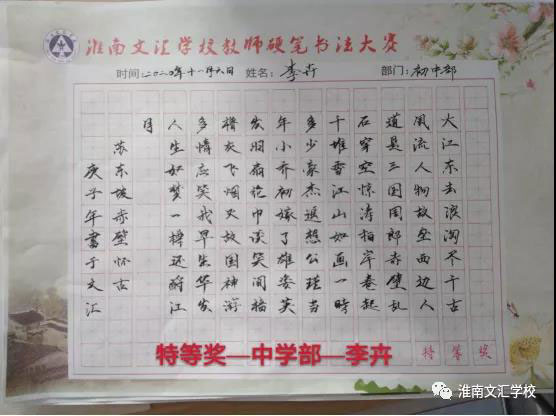 淮南文汇学校教师硬笔书法大赛
时间:二〇二〇年十一月六日 姓名:李卉 部门:初中部
大江东去浪淘尽千古
风流人物故垒西边人
道是三国周郎赤壁乱
石穿空惊涛拍岸卷起
千堆雪江山如画一时
多少豪杰遥想公瑾当
年小乔初嫁了雄姿英
发羽扇纶巾谈笑间樯
橹灰飞烟灭故国神游
多情应笑我早生华发
人生如梦一樽还酹江
月
苏东坡赤壁怀古
庚子年書于文汇
特等奖
特等奖—中学部—李卉
淮南文汇学校